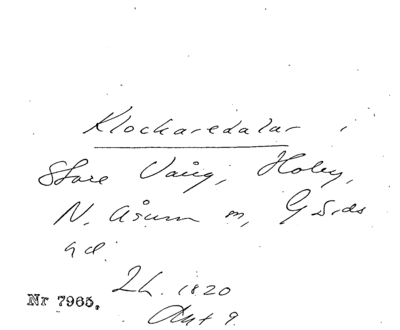 Klockaredalar i
Stare Vång, Hoby,
N. Åsum m, G
hd.
Lh. 1820
Akt 9.
Nr 7965.